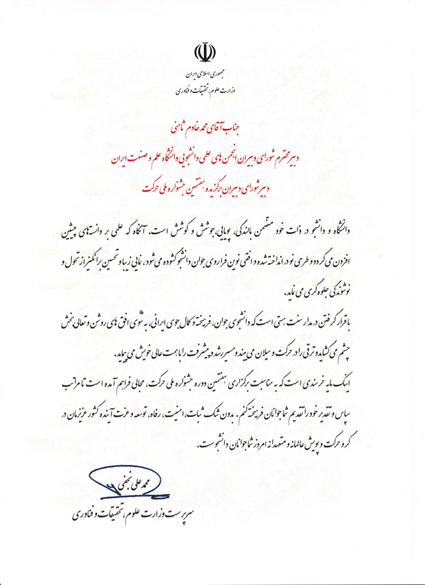 جمهوری اسلامی ایران
وزارت علوم، تحقیقات و فناوری
جناب آقای محمد خادم ثامنی
دبیر محترم شورای دبیران انجمن های علمی دانشجویی دانشگاه علم و صنعت ایران
دبیر شورای دبیران برگزیده هفتمین جشنواره ملی حرکت
دانشگاه و دانشجو در ذات خود متضمن بالندگی، پویایی، جوشش و کوشش است. آنگاه که علمی بر دانسته‌های پیشین
افزون می گردد و طرحی نو در انداخته شده و افقی نوین فراروی جوان دانشجو گشوده می شود، نمایی زیبا و تحسین برانگیز از تحول و
نوشوندگی جلوه گری می نماید.
با قرار گرفتن در مدار سنت هستی است که دانشجوی جوان، فرهیخته و کمال جوی ایرانی، به سوی افق های روشن و تعالی بخش
چشم می گشاید و ترقی را در حرکت و سیلان می بیند و مسیر رشد و پیشرفت را با همت عالی خویش می پیماید.
اینک مایه خرسندی است که به مناسبت برگزاری هفتمین دوره جشنواره ملی حرکت، مجالی فراهم آمده است تا مراتب
سپاس و تقدیر خود را تقدیم شما جوانان فرهیخته کنم. بدون شک ثبات، امنیت، رفاه، توسعه و عزت آینده کشور عزیزمان در
گرو حرکت و پویش عالمانه و متعهدانه امروز شما جوانان دانشجوست.
محمد علی نجفی
سرپرست وزارت علوم، تحقیقات و فناوری